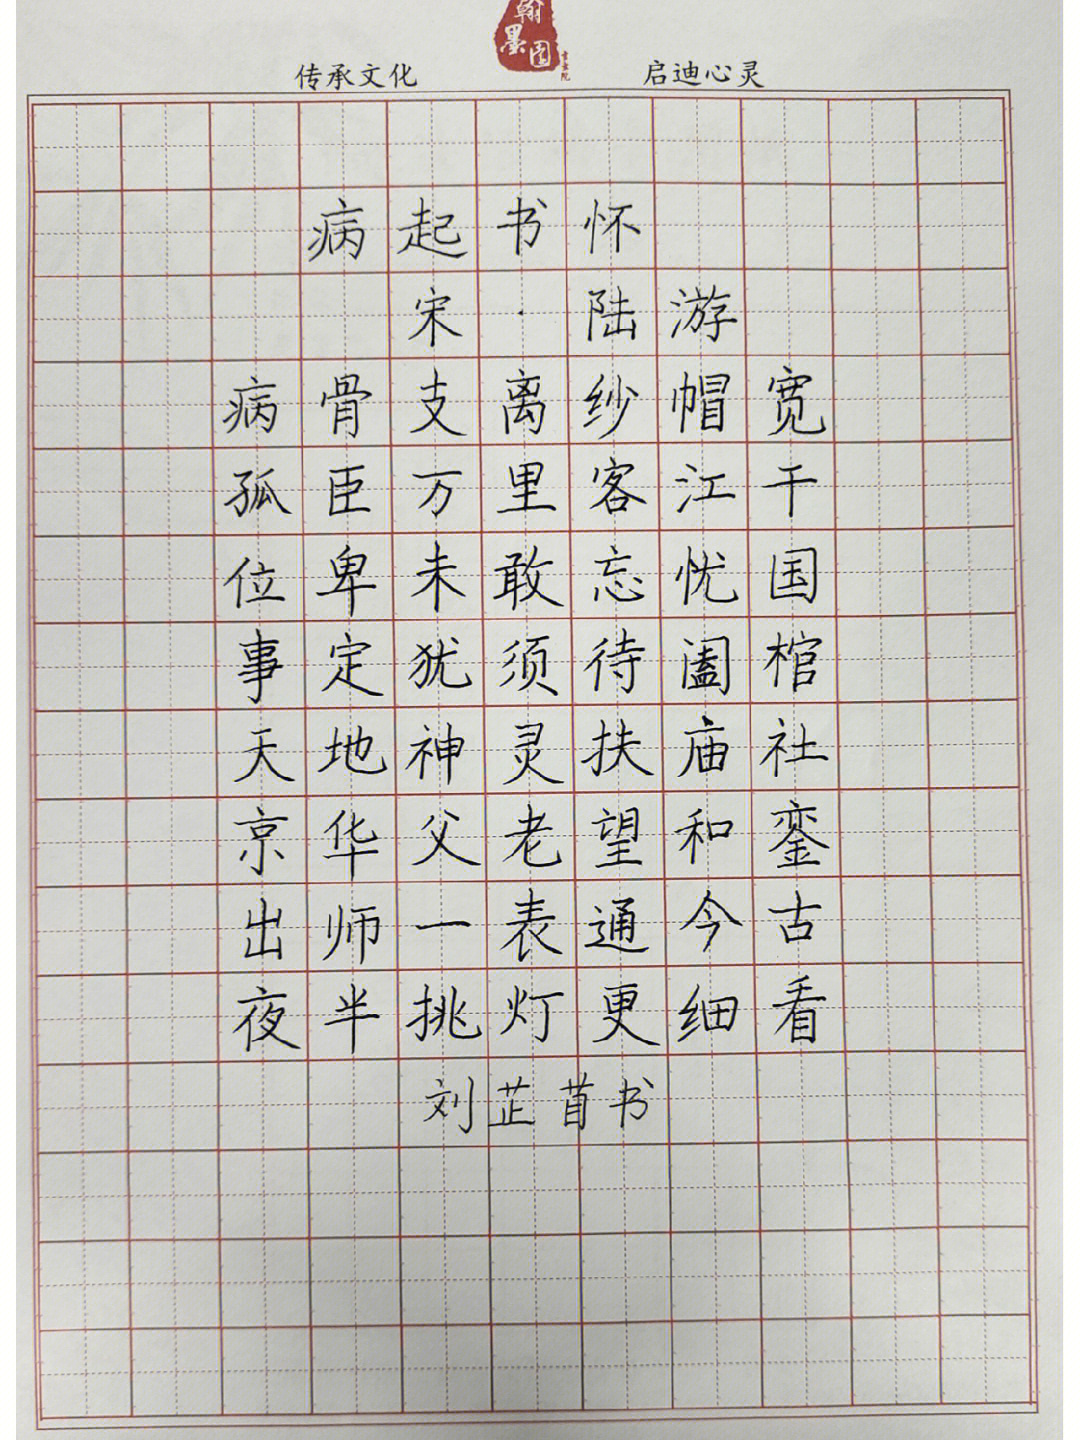 翰墨园
传承文化 启迪心灵
病起书怀
宋·陆游
病骨支离纱帽宽
孤臣万里客江干
位卑未敢忘忧国
事定犹须待阖棺
天地神灵扶庙社
京华父老望和銮
出师一表通今古
夜半挑灯更细看
刘芷苜书